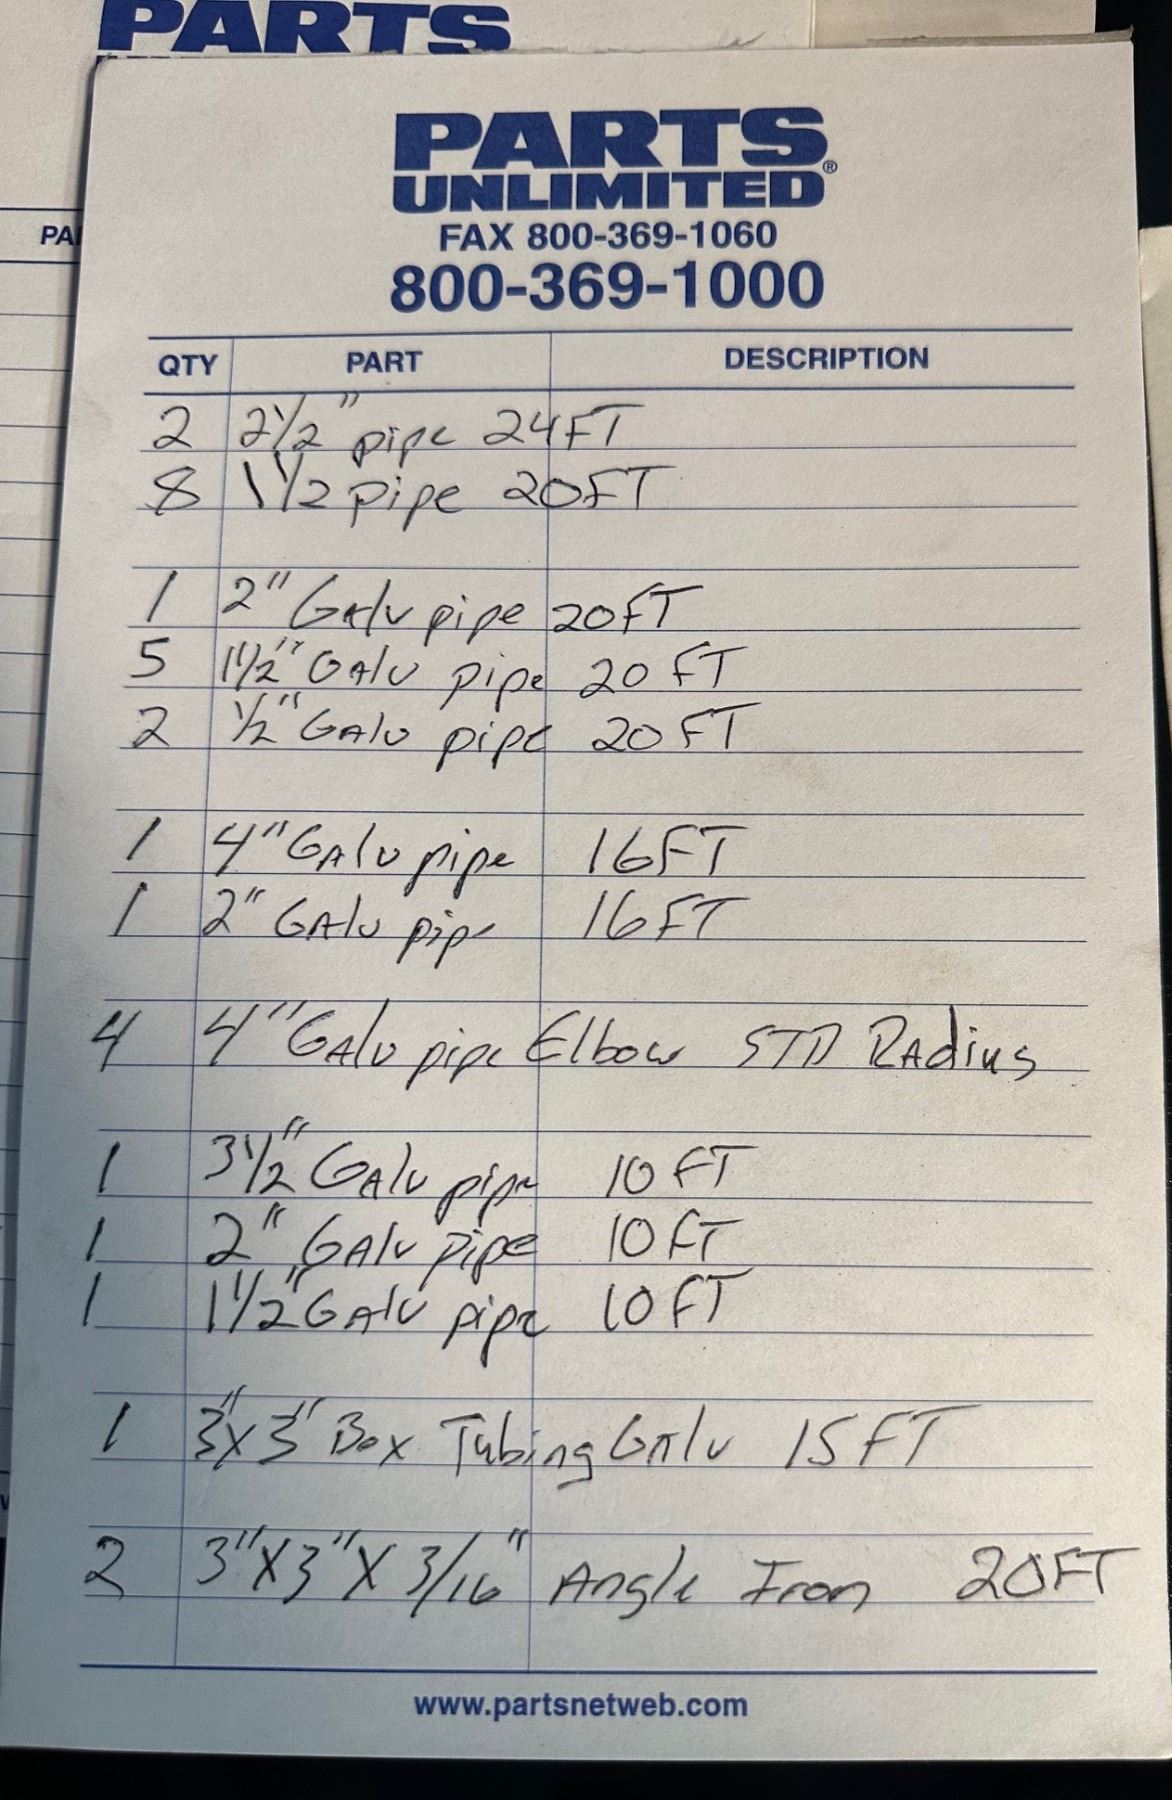 PARTS
PA
PARTS
UNLIMITED®
FAX 800-369-1060
800-369-1000
QTY PART DESCRIPTION
2 2 1/2" pipe 24FT
8 1 1/2 pipe 20FT
1 2" GAlv pipe 20FT
5 1 1/2" GAlv pipe 20 FT
2 1/2" GAlv pipe 20 FT
1 4" GAlv pipe 16FT
1 2" GAlv pipe 16FT
4 4" GAlv pipe Elbow STD RAdius
1 3 1/2" GAlv pipe 10 FT
1 2" GAlv pipe 10 FT
1 1 1/2" GAlv pipe 10 FT
1 3"x3" Box Tubing GAlv 15 FT
2 3"X3"X 3/16" Angle Iron 20FT
www.partsnetweb.com